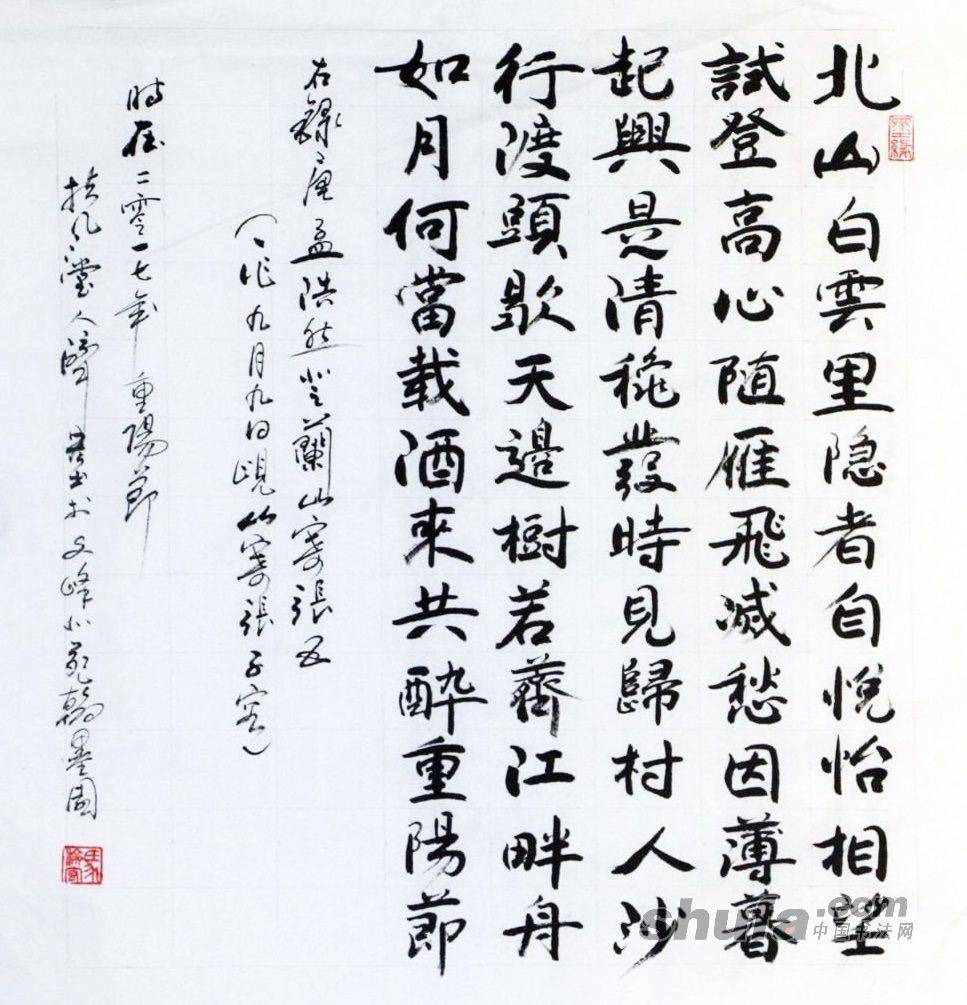 北山白雲里隐者自悦怡相望
試登高心随雁飛滅愁因薄暮
起興是清穐發時見歸村人沙
行渡頭歇天邊樹若薺江畔舟
如月何當載酒來共醉重陽節
右錄唐孟浩然登蘭山寄張五
（一作九月九日峴山寄張子容）
時在二零一七年重陽節
人書於文峰小苑翰墨園
shufa.com
中国书法网